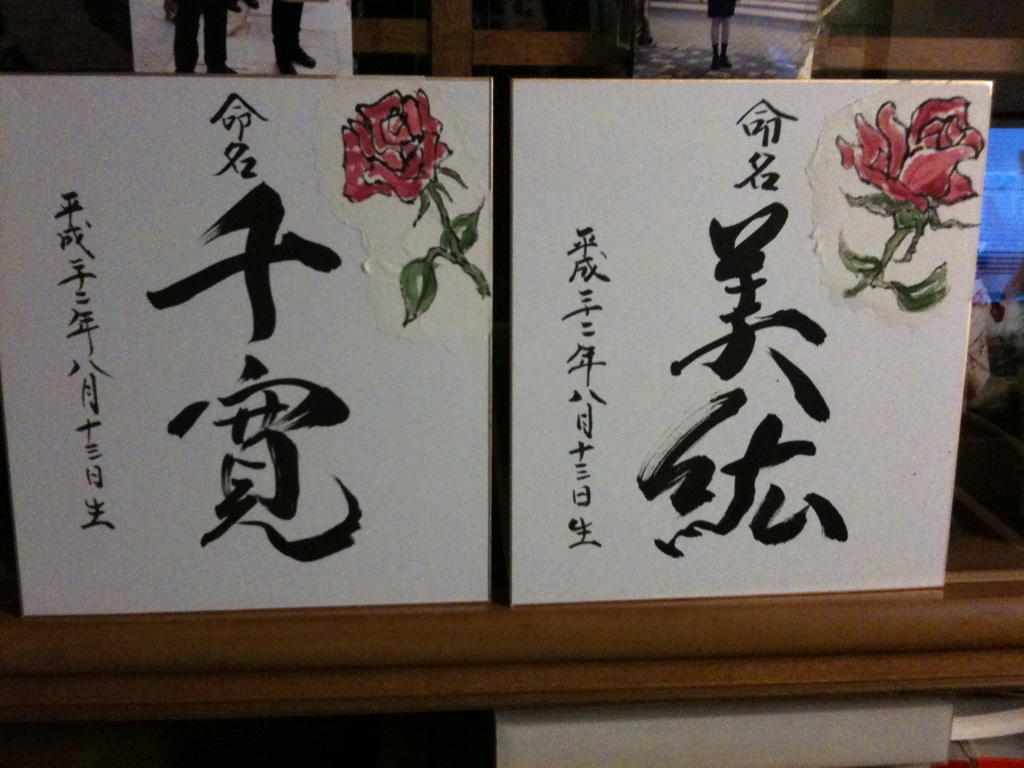 命名
千寛
平成二十二年八月十三日生
命名
美紘
平成二十二年八月十三日生